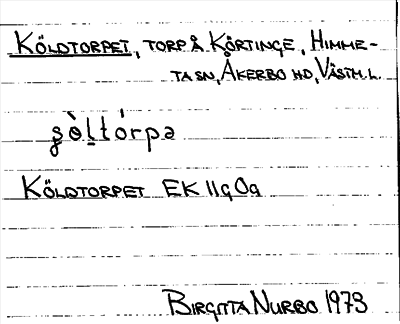 KÖLDTORPET, TORP Å KÖRTINGE, HIMME-
TA SN, ÅKERBO HD, VÄSTM.L.
KÖLDTORPET EK 11g0g
BIRGITTA NURBO 1973